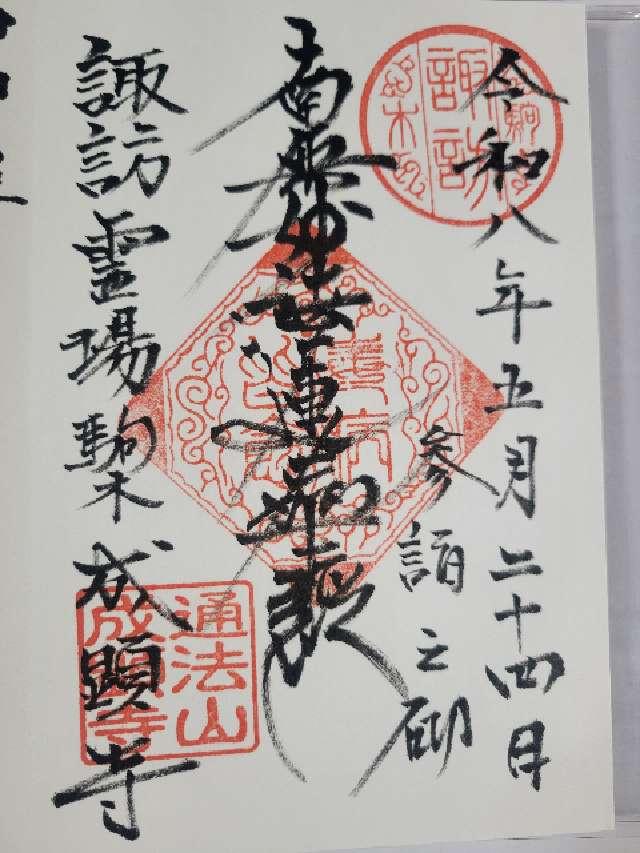 令和八年五月二十四日
参詣之砌
南無妙法蓮華経
諏訪霊場駒木成顕寺
諏訪
通法山
成顕寺